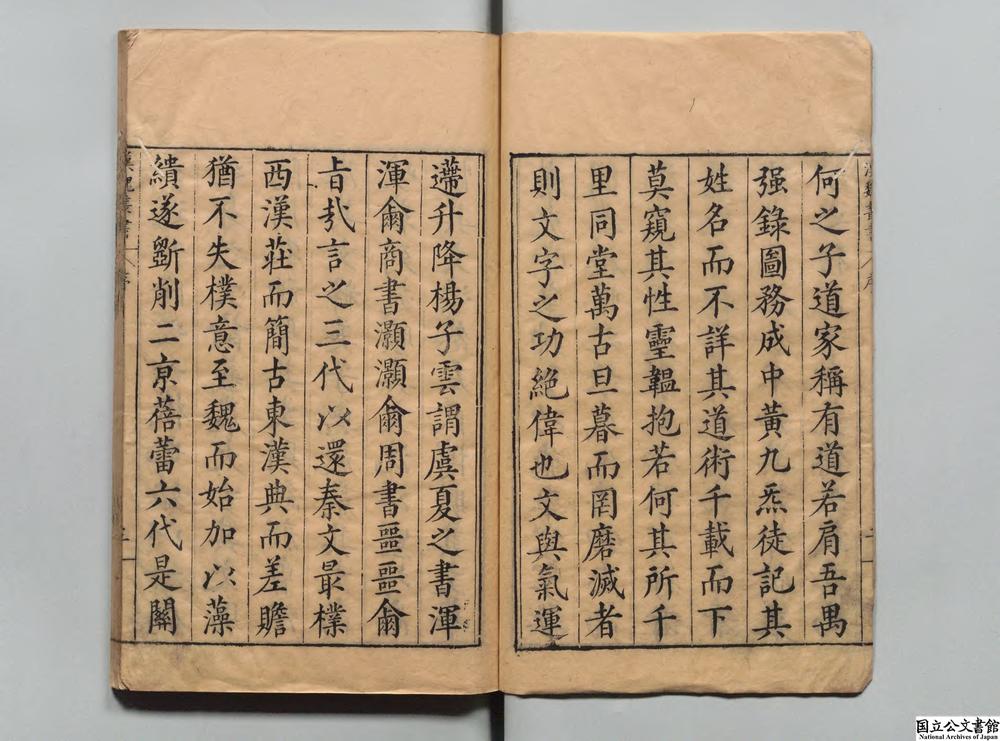 何之子道家稱有道若肩吾禺
强錄圖務成中黃九炁徒記其
姓名而不詳其道術千載而下
莫窺其性靈韞抱若何其所千
里同堂萬古旦暮而罔磨滅者
則文字之功絕偉也文與氣運
遰升降楊子雲謂虞夏之書渾
渾爾商書灝灝爾周書噩噩爾
旨哉言之三代以還秦文最樸
西漢莊而簡古東漢典而差贍
猶不失樸意至魏而始加以藻
繢遂斲削二京蓓蕾六代是關
漢魏叢書
序
二
国立公文書館
National Archives of Japan